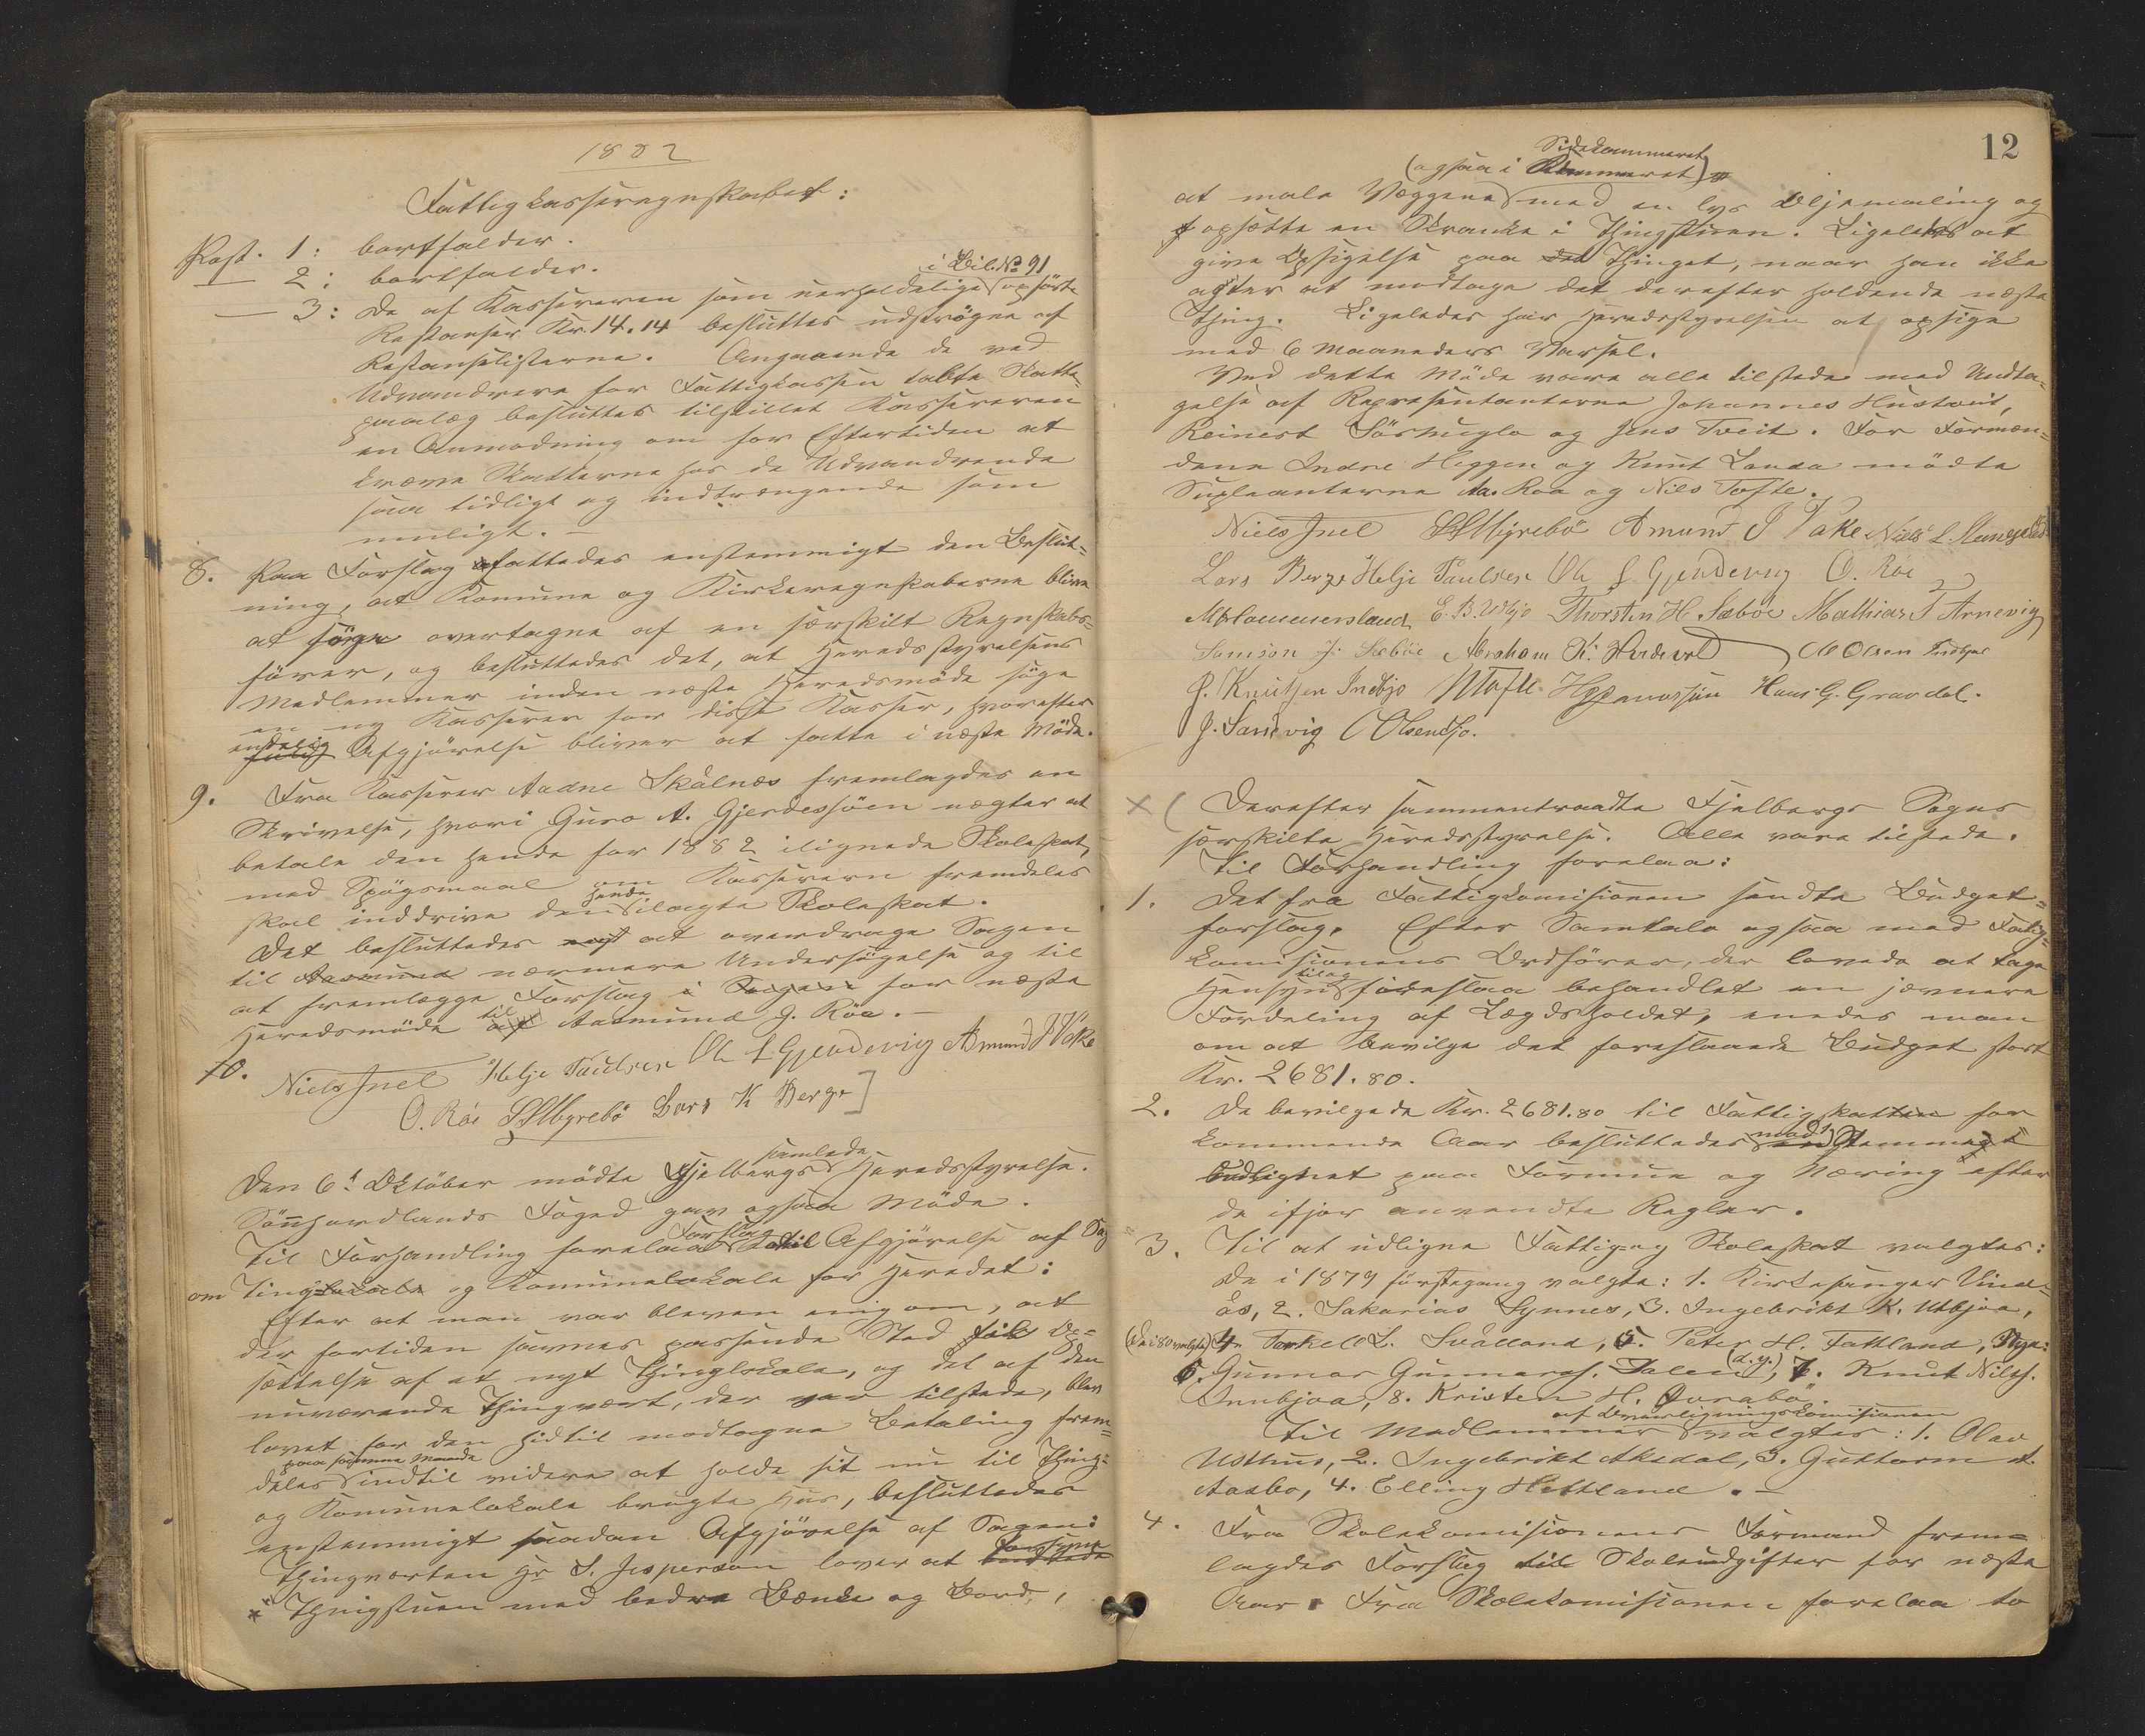 1882
Fattigkasseregnskabet:
Post. 1: bortfalder.
— 2: bortfalder.
— 3: De af Kassereren som uerholdelige i Bil. No 91 opförte
Restanser Kr. 14.14 besluttes udströgne af
Restanselisterne. Angaaende de ved
Udvandrere for Fattigkassen tabte Skatte-
paalæg besluttes tilstillet Kassereren
en Anmodning om for Eftertiden at
kræve Skatterne hos de Udvandrende
saa tidligt og indtrængende som
muligt. —
8. Paa Forslag fattedes enstemmigt den Beslut-
ning, at Komune og Kirkeregnskaberne blive
at söge overtagne af en særskilt Regnskabs-
förer, og besluttedes det, at Heredsstyrelsens
Medlemmer inden næste Heredsmöde söge
en ny Kasserer for disse Kasser, hvorefter
endelig Afgjörelse bliver at fatte i næste Möde.
9. Fra Kasserer Aadne Skålnæs fremlagdes en
Skrivelse, hvori Guro A. Gjerdessöen nægter at
betale den hende for 1882 ilignede Skoleskat,
med Spögsmaal om Kassereren fremdeles
skal inddrive den hende ilagte Skoleskat.
Det besluttedes at overdrage Sagen
til Aasmund nærmere Undersögelse og til
at fremlægge Forslag i Sagen for næste
Heredsmöde til Aasmund G. Röe. —
10.
Niels Juel Helje Paulsen Ole L Gjerdevig Amund J Våke
O. Röe SSMyrebö Lars K Berge
Den 6te Oktober mödte Fjelbergs samlede Heredsstyrelse.
Sönhordlands Foged gav ogsaa Möde.
Til Forhandling forelaa Forslag til Afgjörelse af Sag
om Tinglokale og Komunelokale for Heredet:
Efter at man var bleven enig om, at
der fortiden savnes passende Sted til Op-
sættelse af et nyt Thinglokale, og det af den
nuværende Thingvært, der var tilstede, blev
lovet for den hidtil modtagne Betaling frem-
deles paa samme Maade indtil videre at holde sit nu til Thing-
og Komunelokale brugte Hus, besluttedes
enstemmigt saadan Afgjörelse af Sagen:
Thingverten Hr S. Jesperson lover at forsyne
Thingstuen med bedre Bænke og Bord,
12
(ogsaa i Sidekammeret)
at male Væggene med en lys Oljemaling og
opsætte en Skranke i Thingstuen. Ligeledes at
give Opsigelse paa Thinget, naar han ikke
agter at modtage det derefter holdende næste
Thing. Ligeledes har Heredsstyrelsen at opsige
med 6 Maaneders Varsel.
Ved dette Möde vare alle tilstede med Undta-
gelse af Representanterne Johannes Hustveit,
Reinert Sörhuglo og Jens Tveit. For Formæn-
dene Indre Heggen og Knut Landa mödte
Supleanterne Aa. Röe og Nils Tofte.
Niels Juel SSMyrebö Amund J Våke Niels L.
Lars Berge Helje Paulsen Ole L Gjerdevig O. Röe
E. B. Utbjo Thorsten H. Sæböe Mathias T Arnevig
Samson J. Sæböe Abraham K. Ole Olsen
J. Knutsen Indbjo NTofte. Hans G. Gravdal.
J. Sandvig
× ( Derefter sammentraadte Fjelbergs Sogns
særskilte Heredsstyrelse. Alle vare tilstede.
Til Forhandling forelaa:
1. Det fra Fattigkomisionen sendte Budget-
forslag. Efter Samtale ogsaa med Fattig-
komisionens Ordförer, der lovede at tage
Hensyn til og foreslaa behandlet en jævnere
Fordeling af Lægdsholdet, enedes man
om at bevilge det foreslaaede Budget stort
Kr. 2681.80.
2. De bevilgede Kr. 2681.80 til Fattigskatten for
kommende Aar besluttedes mod 1 Stemme
udlignet paa Formue og Næring efter
de ifjor anvendte Regler.
3. Til at udligne Fattig og Skoleskat valgtes:
De i 1879 förstegang valgte: 1. Kirkesanger Vind-
ås, 2. Sakarias Synnes, 3. Ingebrikt K. Utbjoa,
(De i 80 valgte) 4. Torkel L. Svålland, 5. Peter H. Fattland, Nye:
6. Gunnar Gunnarss. Dalen (d. y.), 7. Knut Nilss.
Innbjoa, 8. Kristen H.
Til Medlemmer af Overligningskomisionen valgtes: 1. Olav
Usthus, 2. Ingebrikt Aksdal, 3. Guttorm A.
Aasbo, 4. Elling Hettland. —
4. Fra Skolekomisionens Formand frem-
lagdes Forslag til Skoleudgifter for næste
Aar. Fra Skolekomisionen forelaa to